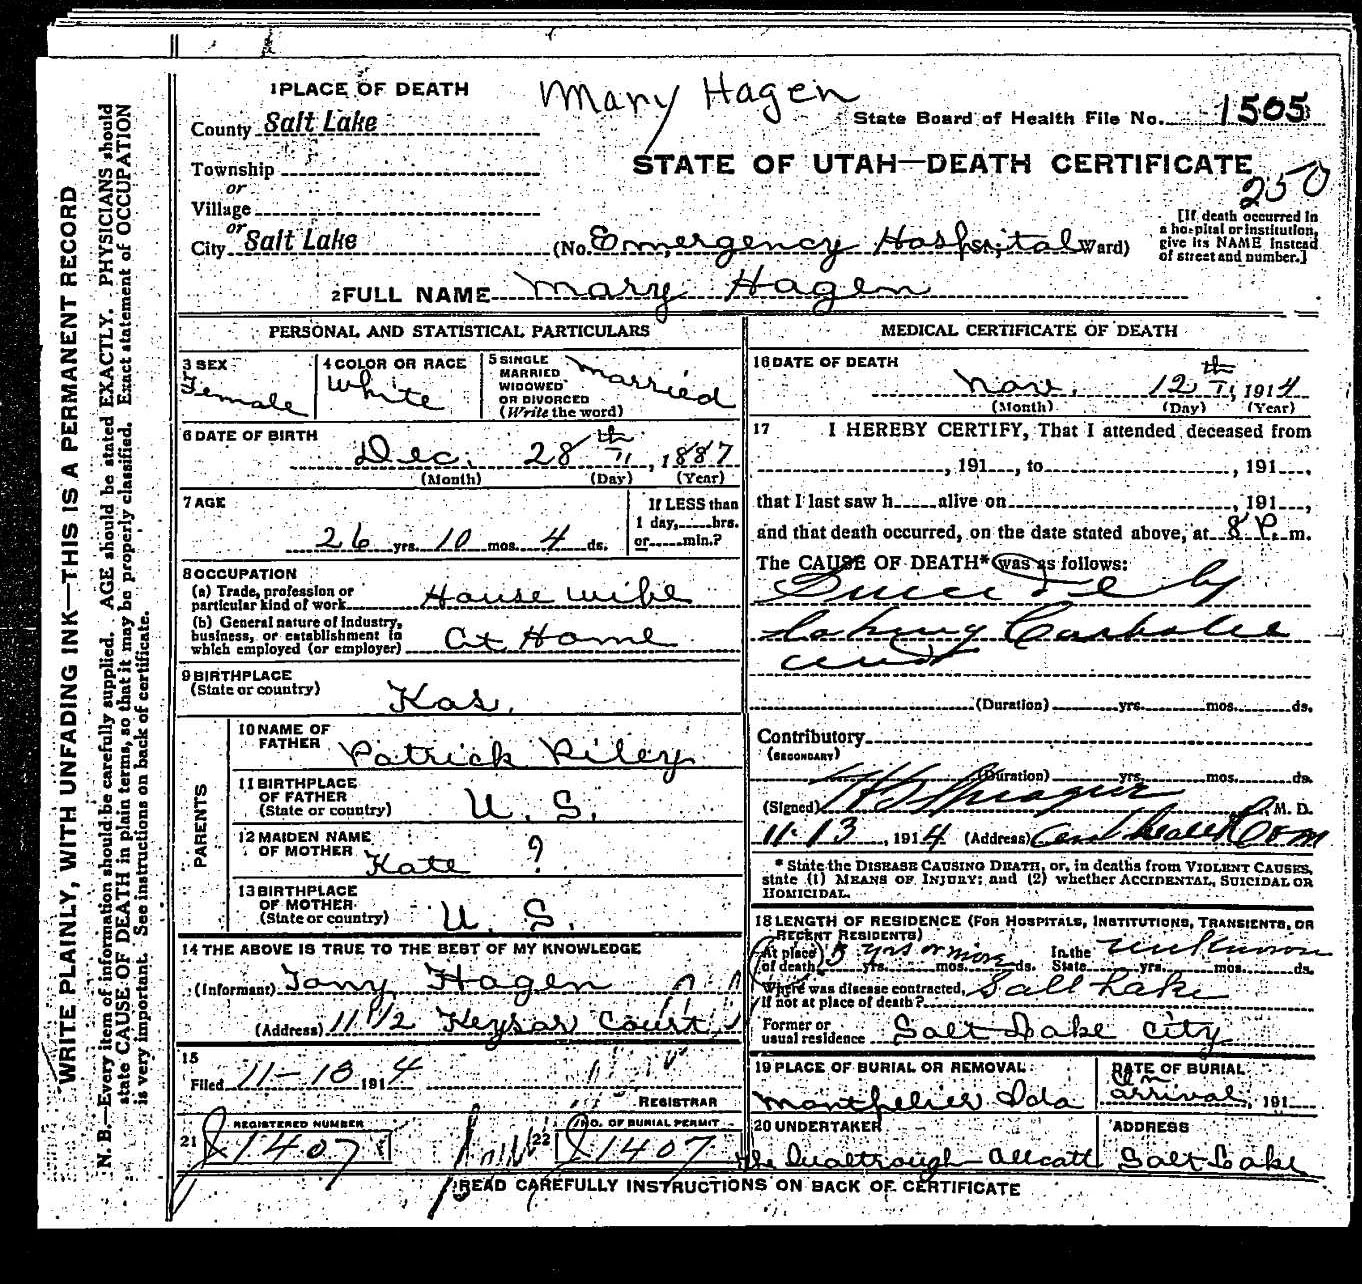 Mary Hagen
1 PLACE OF DEATH
County Salt Lake
State Board of Health File No. 1505
Township
or
Village
STATE OF UTAH—DEATH CERTIFICATE
250
or
City Salt Lake (No. Emergency Hospital St.; Ward)
[If death occurred in
a hospital or institution,
give its NAME instead
of street and number.]
2 FULL NAME Mary Hagen
PERSONAL AND STATISTICAL PARTICULARS
3 SEX
Female
4 COLOR OR RACE
White
5 SINGLE
MARRIED
WIDOWED
OR DIVORCED
(Write the word)
Married
6 DATE OF BIRTH
Dec. 28th, 1887
(Month) (Day) (Year)
7 AGE
26 yrs. 10 mos. 4 ds.
If LESS than
1 day, hrs.
or min.?
8 OCCUPATION
(a) Trade, profession or
particular kind of work House wife
(b) General nature of industry,
business, or establishment in
which employed (or employer) At Home
9 BIRTHPLACE
(State or country)
Kas.
PARENTS
10 NAME OF
FATHER
Patrick Riley
11 BIRTHPLACE
OF FATHER
(State or country)
U. S.
12 MAIDEN NAME
OF MOTHER
Kate ?
13 BIRTHPLACE
OF MOTHER
(State or country)
U. S.
14 THE ABOVE IS TRUE TO THE BEST OF MY KNOWLEDGE
(Informant) Tony Hagen
(Address) 11 1/2 Keysar Court
15
Filed 11-13 1914
REGISTRAR
21 REGISTERED NUMBER
1407
22 NO. OF BURIAL PERMIT
1407
MEDICAL CERTIFICATE OF DEATH
16 DATE OF DEATH
Nov. 12th, 1914
(Month) (Day) (Year)
17 I HEREBY CERTIFY, That I attended deceased from
, 191 , to , 191 ,
that I last saw h alive on , 191 ,
and that death occurred, on the date stated above, at 8 P. m.
The CAUSE OF DEATH* was as follows:
Suicide by
taking Carbolic
acid
(Duration) yrs. mos. ds.
Contributory
(SECONDARY)
(Duration) yrs. mos. ds.
(Signed) M. D.
11-13, 1914 (Address) Health Com
* State the DISEASE CAUSING DEATH, or, in deaths from VIOLENT CAUSES,
state (1) MEANS OF INJURY; and (2) whether ACCIDENTAL, SUICIDAL OR
HOMICIDAL.
18 LENGTH OF RESIDENCE (FOR HOSPITALS, INSTITUTIONS, TRANSIENTS, OR
RECENT RESIDENTS)
At place
of death 5 yrs or more yrs. mos. ds. In the
State unknown yrs. mos. ds.
Where was disease contracted,
if not at place of death? Salt Lake
Former or
usual residence Salt Lake City
19 PLACE OF BURIAL OR REMOVAL
Montpelier Ida
DATE OF BURIAL
On arrival, 191
20 UNDERTAKER
ADDRESS
Salt Lake
READ CAREFULLY INSTRUCTIONS ON BACK OF CERTIFICATE
WRITE PLAINLY, WITH UNFADING INK—THIS IS A PERMANENT RECORD
N. B.—Every item of information should be carefully supplied. AGE should be stated EXACTLY. PHYSICIANS should
state CAUSE OF DEATH in plain terms, so that it may be properly classified. Exact statement of OCCUPATION
is very important. See instructions on back of certificate.